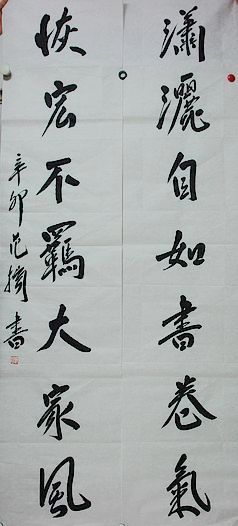 瀟灑自如書卷氣
恢宏不羈大家風
辛卯范琦書